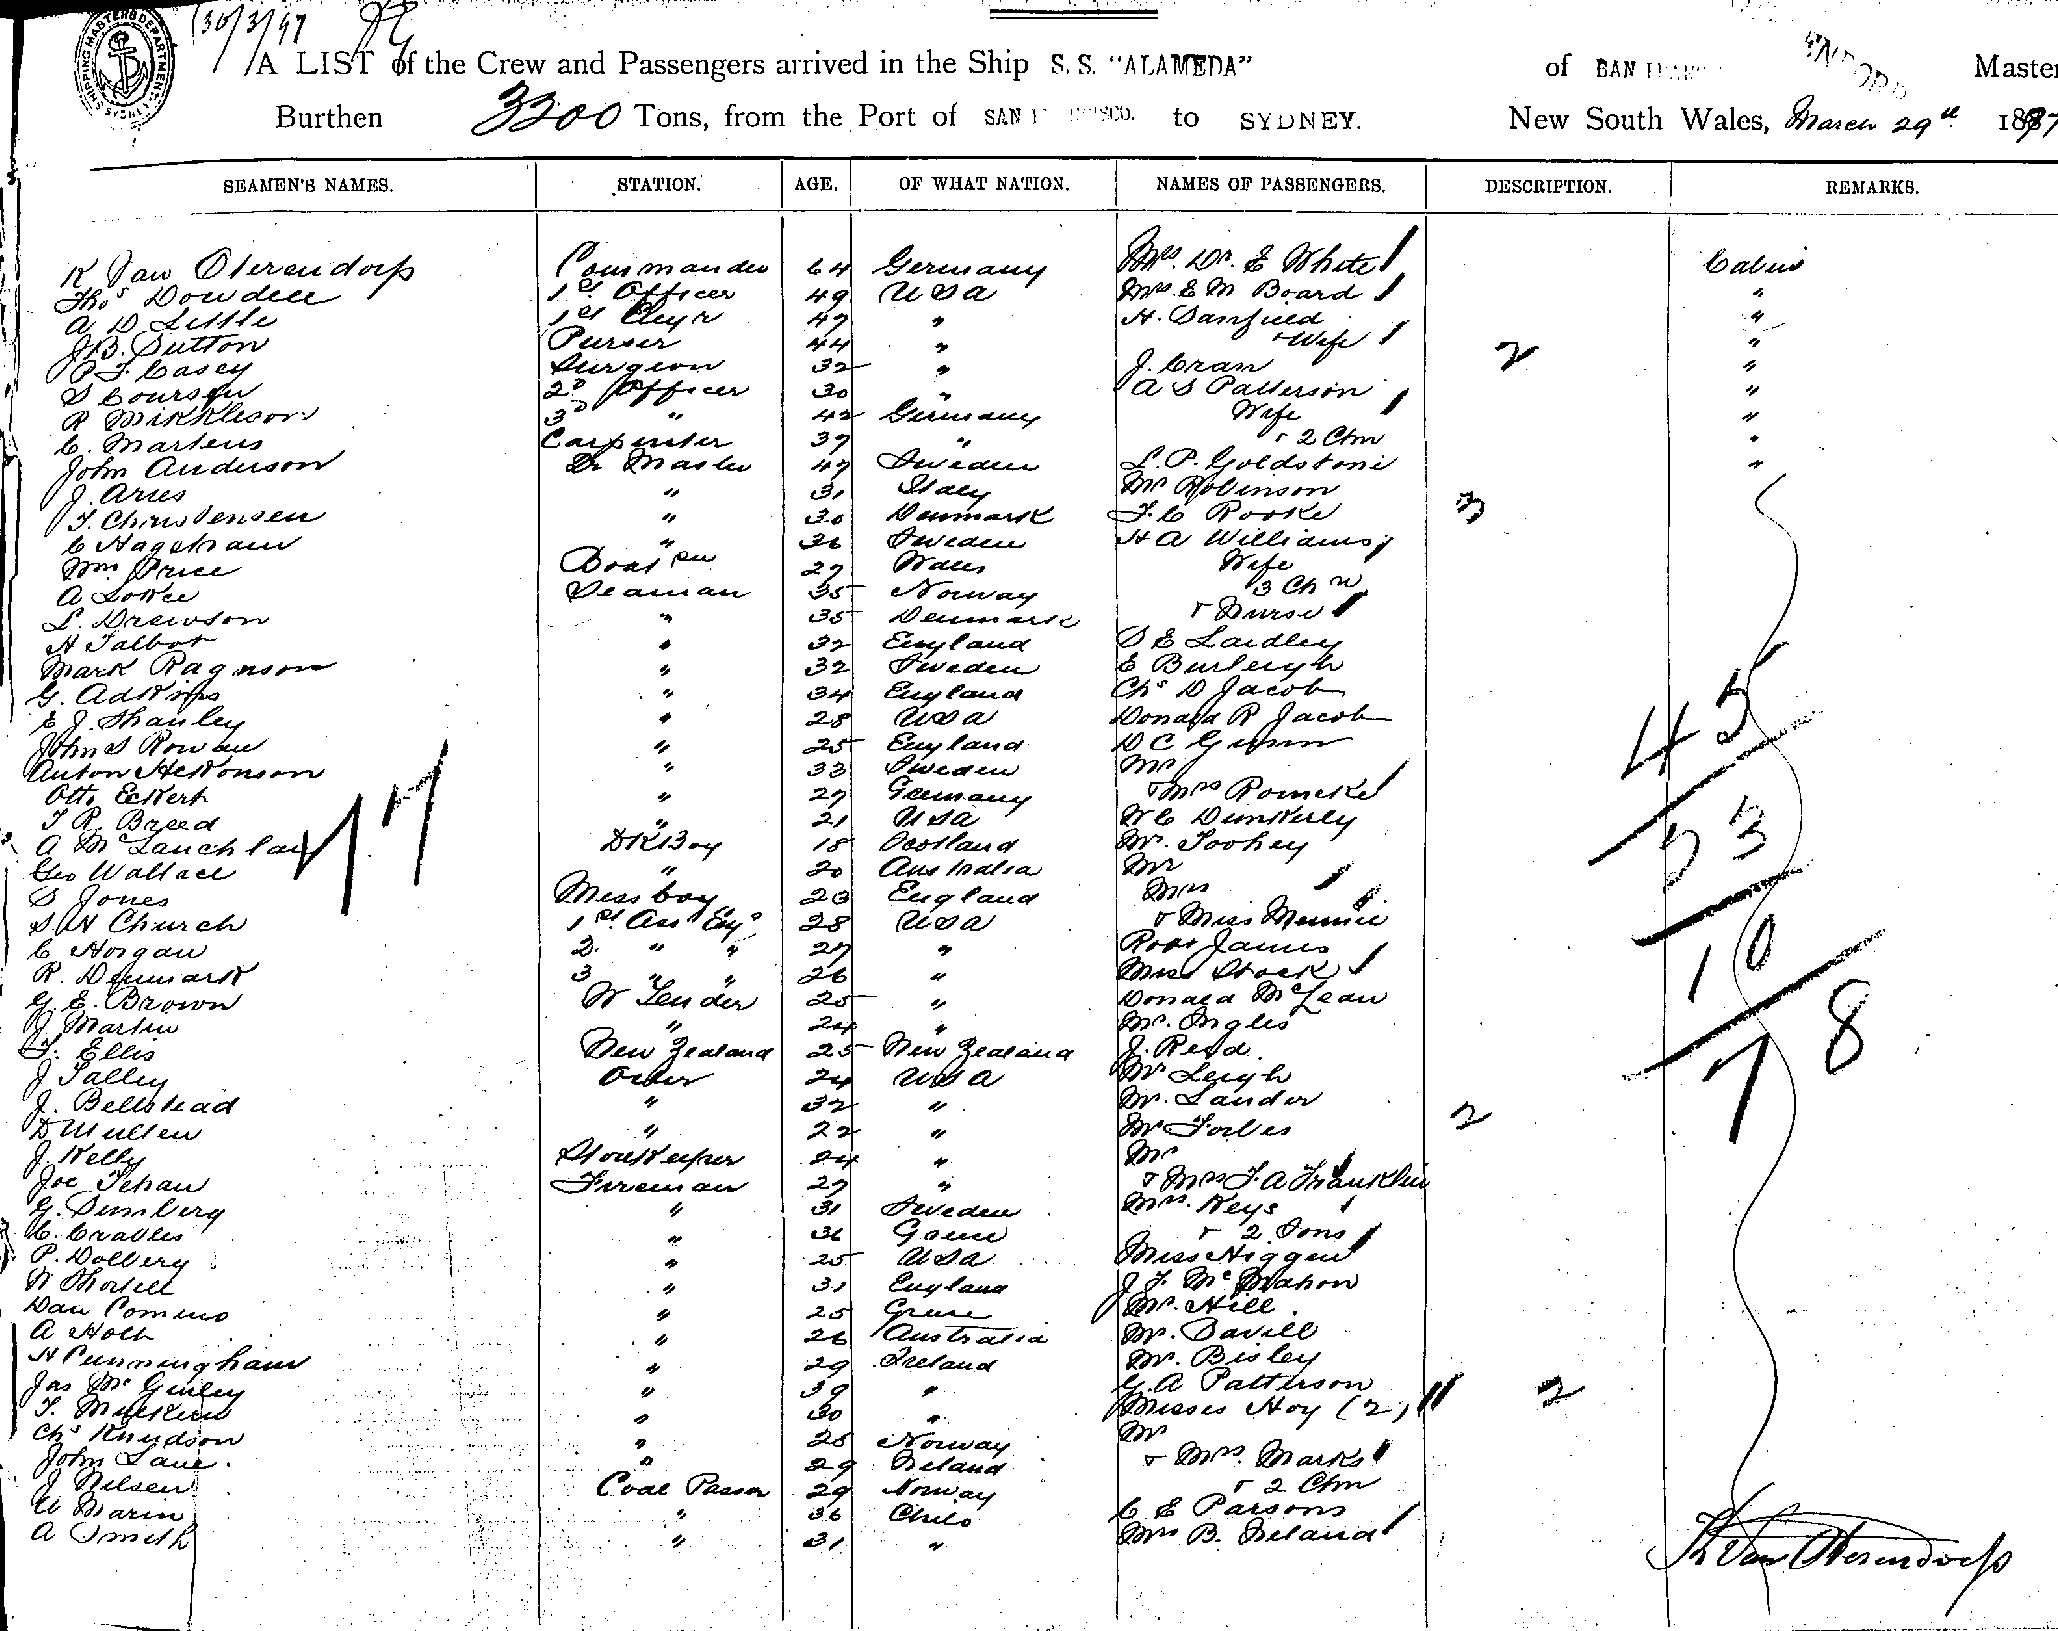 SHIPPING MASTERS DEPARTMENT SYDNEY
30/3/97
A LIST of the Crew and Passengers arrived in the Ship S.S. "ALAMEDA" of SAN Master
Burthen 3300 Tons, from the Port of SAN to SYDNEY. New South Wales, March 29th 1897
SEAMEN'S NAMES. STATION. AGE. OF WHAT NATION. NAMES OF PASSENGERS. DESCRIPTION. REMARKS.
K Van Oterendorp Commander 64 Germany Mrs. Dr. E White Cabin
Thos Dowdell 1st Officer 49 USA Mrs E M Board "
A D Little 1st 47 " H. "
J.B. Sutton Purser 44 " + Wife "
P J Casey Surgeon 32 " J. Cran 2 "
Coursen 2d Officer 30 " A S Patterson "
R Mikkleson 3d " 42 Germany Wife "
C. Martens Carpenter 37 " + 2 Chn "
John Anderson Qr Master 47 Sweden L. P. Goldstone "
J. Aries " 31 Italy Mr Robinson
T. Christensen " 30 Denmark F. C Rooke 3
C " 36 Sweden H A Williams
Wm Price 27 Wales Wife
A Seaman 35 Norway 3 Chn
L. Drewson " 35 Denmark + Nurse
H Talbot " 32 England S E Laidley
Mark Ragnson " 32 Sweden E Burleigh
G. Adkins " 34 England Chs D Jacob
E J. Shanley " 28 USA Donald R Jacob 45
John S Rowan " 25 England D C Gunn
Anton " 33 Sweden Mr
Otto Eckert " 27 Germany + Mrs 17
T R. Breed " 21 USA W C Dunkerly 33
A McLauchlan DKBoy 18 Scotland Mr. Toohey
Geo Wallace " 20 Australia Mr
S Jones Messboy 23 England Mrs
S W Church 1st Asst Engr 28 USA + Miss Minnie
C Horgan 2 " " 27 " Robt James 10
R. Denmark 3 " " 26 " Miss Stock
G. E. Brown W Tender 25 " Donald McLean
J. Martin " 24 " Mr. Ingles
T. Ellis New Zealand 25 New Zealand J. Reid 78
J Talley Oiler 24 USA Mr Leigh
J. Bellstead " 32 " Mr. Lander
D Mullen " 22 " Mr Forbes 2
J. Kelly Storekeeper 24 " Mr
Joe Tehan Fireman 27 " + Mrs F. A Franklin
G. " 31 Sweden Mrs. Keys
C. " 36 + 2 Sons
P. Dolbery " 25 USA Miss
W " 31 England J. F. McMahon
Dan Comino " 25 Mr. Hill
A Holt " 26 Australia Mr. Davill
H Cunningham " 29 Ireland Mr. Bisley
Jas McGinley " 39 " G. A Patterson
T. " 30 " Misses Hoy (2) 2
Chs Knudson " 25 Norway Mr
John Lane " 29 Ireland + Mrs. Marks
J Nilsen Coal Passer 29 Norway + 2 Chn
Marin " 36 Chile C E Parsons
A Smith " 31 " Mrs B. Ireland
K Van Oterendorp